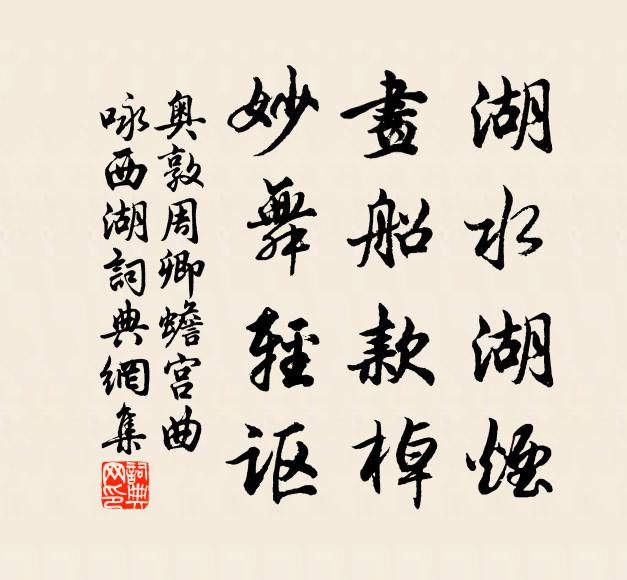 湖水湖煙
畫船款棹
妙舞輕讴
奥敦周卿蟾宫曲
咏西湖詞典網集
詞典网印